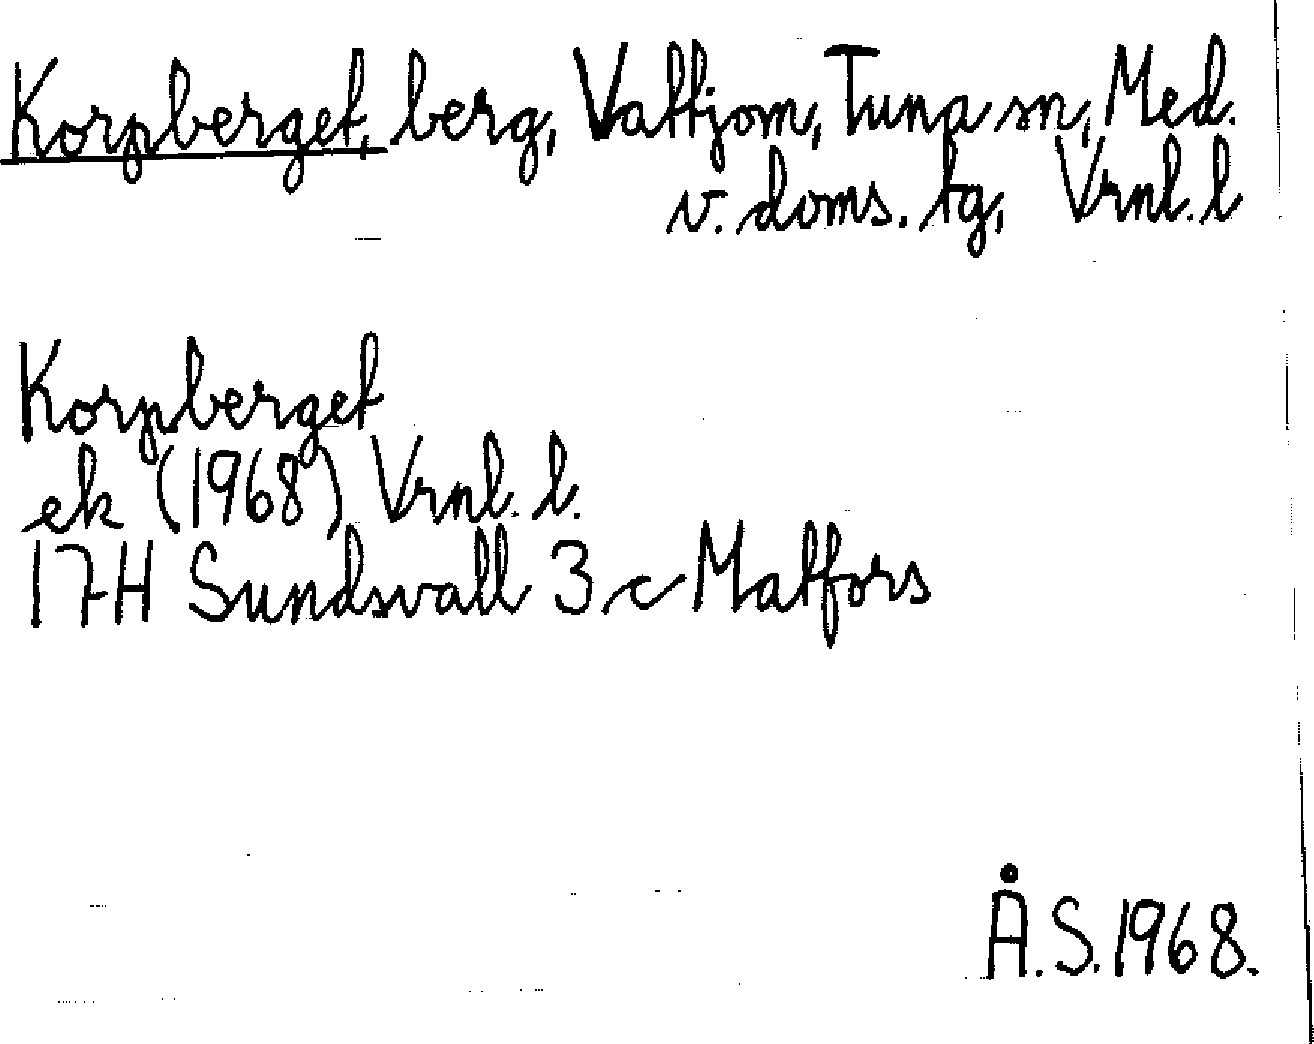 Korpberget, berg, Vattjom, Tuna sn, Med.
v. doms. tg, Vrnl. l
Korpberget
ek (1968) Vrnl. l.
17H Sundsvall 3 c Matfors
Å.S. 1968.